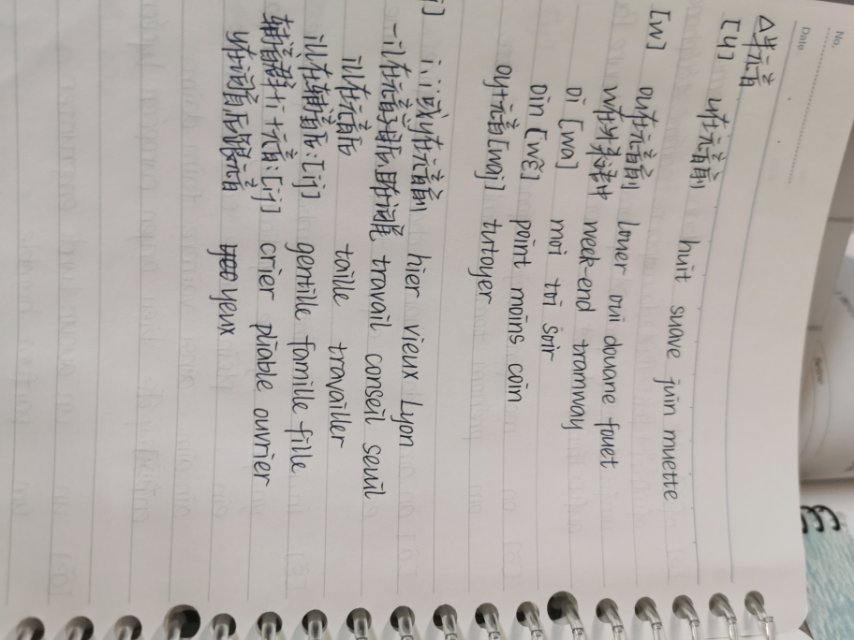 No.
Date
△半元音
[ɥ] u在元音前 huit suave juin muette
[w] ou在元音前 louer oui douane fouet
w在外来词中 week-end tramway
oi [wa] moi toi soir
oin [wɛ̃] point moins coin
oy+元音[waj] tutoyer
[j] i,ï或y在元音前 hier vieux Lyon
-il在元音字母后,且在词尾 travail conseil seuil
ill在元音后 taille travailler
ill在辅音后:[ij] gentille famille fille
辅音群+i+元音:[ij] crier pliable ouvrier
y在词首后跟元音 yeux